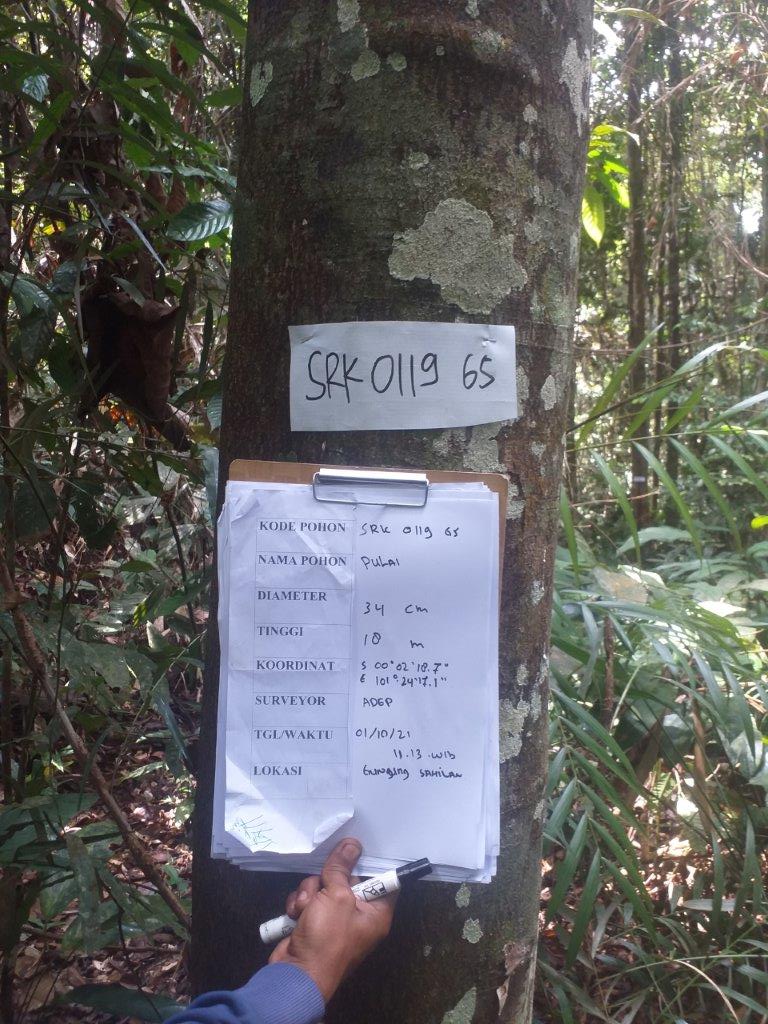 SRK 0119 65
KODE POHON SRK 0119 65
NAMA POHON PULAI
DIAMETER 34 cm
TINGGI 18 m
KOORDINAT S 00°02'18.7"
E 101°24'17.1"
SURVEYOR ADEP
TGL/WAKTU 01/10/21
11.13 WIB
LOKASI SAHILAN